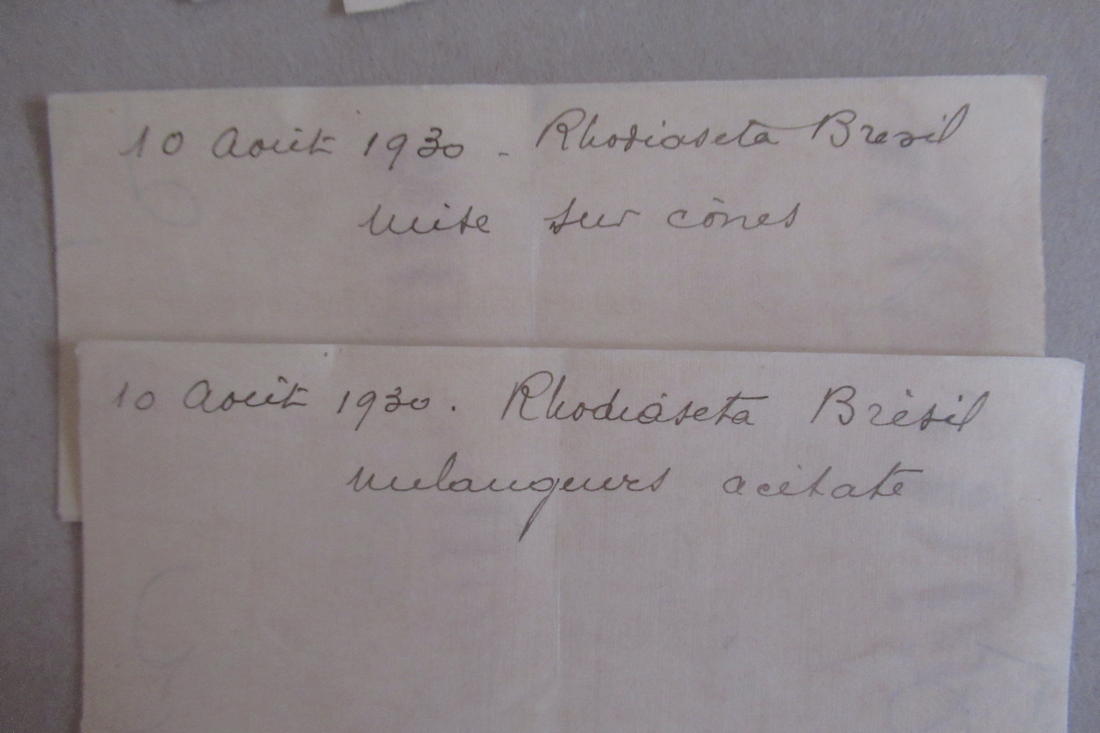 10 Août 1930 - Rhodiaseta Bresil
mise sur cônes
10 Août 1930. Rhodiaseta Brésil
melangeurs acétate